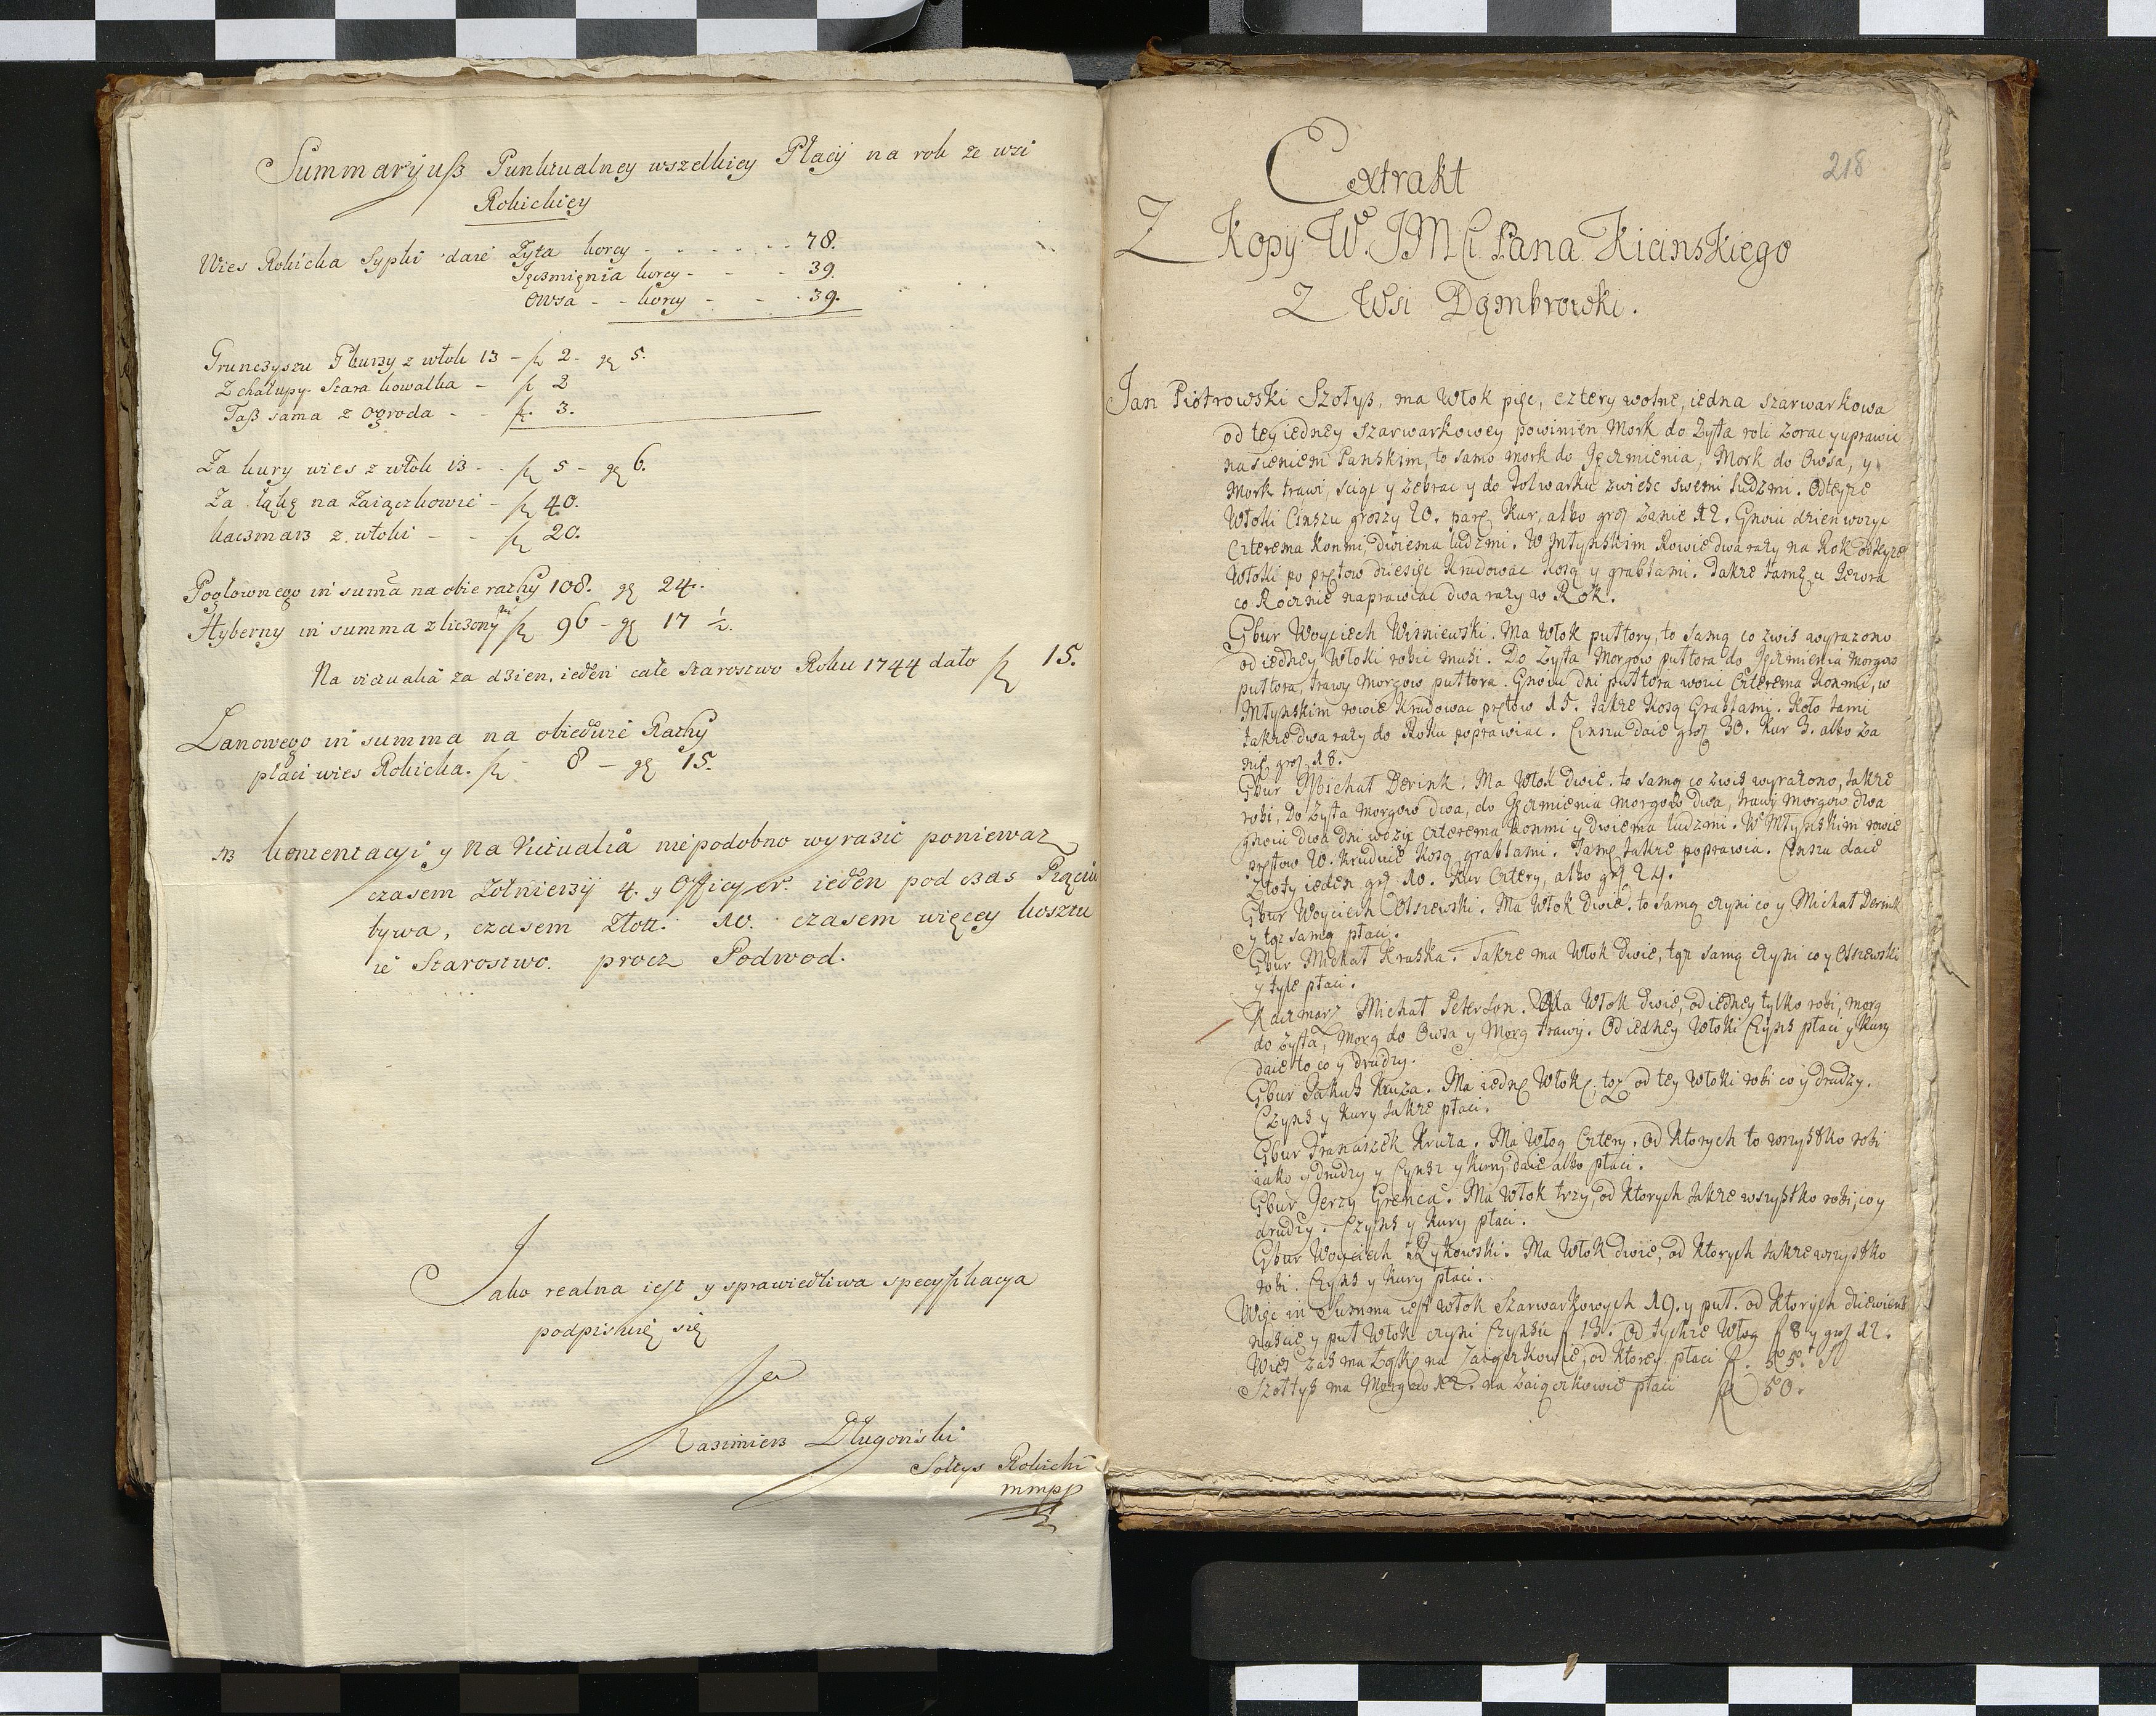 Summaryusz Punktualney wszelkiey Płacy na rok ze wsi
Rokickiey
Wies Rokicka Sypki daie Zyta korcy - - - - - - 78.
Jęczmięnia korcy - - - 39.
Owsa - - korcy - - - 39.
Grunczyszu Gburzy z włok 13 - fl 2 - gr 5.
Z chałupy Stara kowalka - fl 2
Taß sama z ogroda - - fl. 3.
Za kury wies z włok 13 - - fl 5 - gr 6.
Za łąkę na Zaiączkowie - fl 40.
kaczmarz z włoki - - fl 20.
Pogłownego in suma na obie rathy 108. gr 24.
Hyberny in summa zliczony fl 96 - gr 17 ½.
Na victualia za dzien ieden całe Starostwo Roku 1744 dało fl 15.
Lanowego in summa na obiedwie Rathy
płaci wies Rokicka. fl - 8 - gr 15.
NB konsentacyi y na Victualia niepodobno wyrazic poniewaz
czasem Zołnierzy 4. y Officyer. ieden pod czas
bywa, czasem Złott: 10. czasem więcey kosztu
ie Starostwo. procz Podwod.
Jako realna iest y sprawiedliwa specyfikacya
podpisuię się
Ja
Kazimierz Długonski
Sołtys Rokicki
mmpp
218
Extrakt
Z Kopy W. JMCi Pana Kicinskiego
Z Wsi Dąmbrowski.
Jan Piotrowski Szołtyß, ma Włok pięc, cztery wolne, iedna szarwarkowa
od tey iedney szarwarkowey powinien Mork do Zyta roli zorac y uprawic
nasieniem Panskim, to samo mork do Jęczmienia, Mork do Owsa, y
Mork trawi, sciąc y zebrac y do Folwarku zwiesc swemi ludzmi. Od teyze
Włoki Cinszu groszy 20. parę Kur, albo groß zanie 12. Gnoiu dzien wozyc
Czterema Konmi, dwiema ludzmi. W Młynskim Rowie dwa razy na Rok od teyze
Włoki po prętow dziesięc krudowac Kosą y grabłami. Takze tamę u Jeziora
co Rocznie naprawiac dwa razy w Rok.
Gbur Woyciech Wisniewski. Ma Włok pułtory, to samą co zwiß wyrazono
od iedney Włoki robic musi. Do Zyta Morgow pułtora do Jęczmienia Morgow
pułtora, trawy Morgow pułtora. Gnoiu dni pułtora wozic Czterema Konmi, w
Młynskim rowie krudowac prętow 15. takze Kosą Grabłami. Koło tami
takze dwa razy do Roku poprawiac. Cinszu daie groß 30. Kur 3. albo za
nię groß 18.
Gbur Michał Derink. Ma Włok dwie. to samą co zwiß wyrazono, takze
robi, Do Zyta morgow dwa, do Jęczmienia morgow dwa, trawi morgow dwa
gnoiu dwa dni wozic czterema konmi y dwiema ludzmi. W Młynskim rowie
prętow 20. kruduie kosą grabłami. Tamę takze poprawia. Cinszu daie
Złoty ieden groß 10. Kur Cztery, albo groß 24.
Gbur Woyciech Olszewski. Ma Włok dwie. to samą czyni co y Michał Derink
y tąz samą płaci.
Gbur Michał Kruska. Takze ma Włok dwie, tąz samą czyni co y Olszewski
y tyle płaci.
Karzmarz Michał Peterson. Ma Włok dwie, od iedney tylko robi, morg
do Zyta, Morg do Owsa y Morg trawy. Od iedney Włoki Czynß płaci y kury
daie to co y drudzy.
Gbur Jakub Kruza. Ma iednę Włokę, toz od tey Włoki robi co y drudzy.
Czynß y Kury takze płaci.
Gbur Franciszek Kruza. Ma Włog Cztery. Od Ktorych to wszystko robi
iako y drudzy y Cynsz y Kury daie albo płaci.
Gbur Jerzy Grenca. Ma Włok trzy, od Ktorych takze wszyßtko robi, co y
drudzy. Czynß y Kury płaci.
Gbur Woyciech Rykowski. Ma Włok dwie, od Ktorych takze wszystko
robi. Czynß y Kury płaci.
Więc in Summa iest włok Szarwarkowych 19. y puł. od Ktorych dziewient
nascie y puł Włok czyni Czynsu f 13. Od tychze Włog f 8 y groß 12.
Wies zas ma Łąkę na Zaiączkowie, od Ktorey płaci f.
Szołtyß ma Morgow 12. na Zaiączkowie płaci f 50.